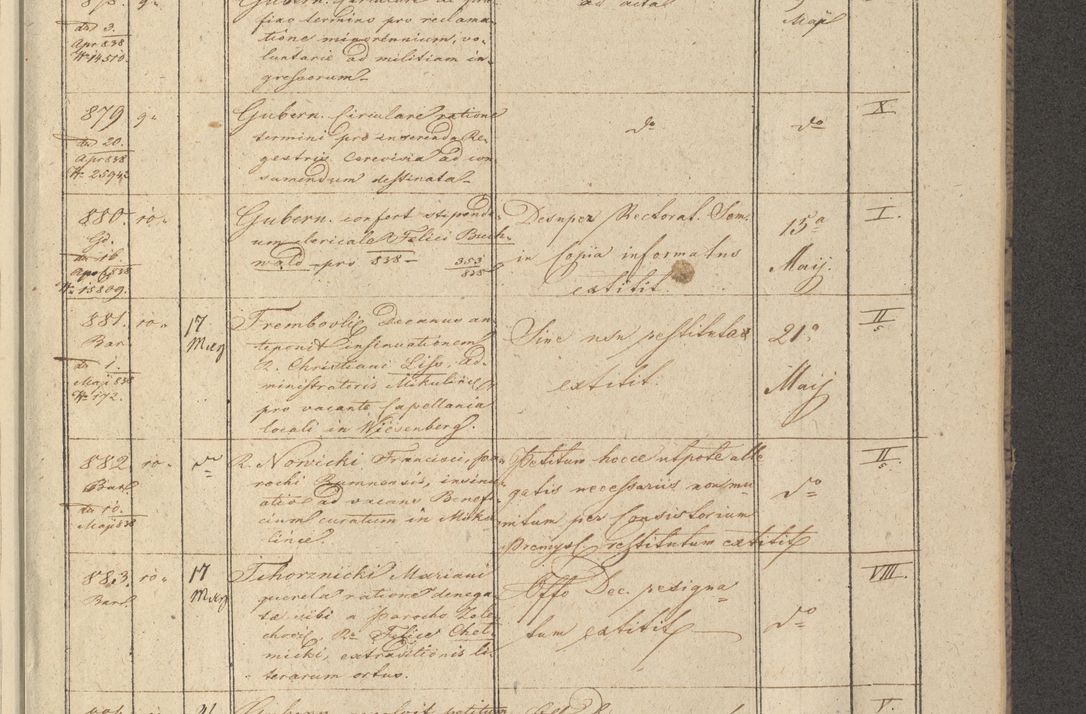 fixo termino pro reclama-
tione minorennium, vo-
luntarie ad militiam in-
gressorum.
ad acta
Maji
dto 3.
Apr 838
№ 14510.
879 9.
dto 20.
Apr 838
№ 25942
Gubern. Circulare ratione
termini pro inserenda Re-
gestris Cerevisia ad con-
sumendum destinata.
do
do
X.
880. 10.
Gd.
dto 16.
Apr 838
№ 18809.
Gubern. confert stipendi-
um clericale Felici Buch-
wald pro 838
Desuper Rectorat. Sem.
in Copia informatus
extitit.
15a
Maij.
I.
881. 10.
Bar.
dto 1.
Maji 838
№ 172.
17
May
Trembovlie Decanus an-
teponit insinuationem
R. Christiani Liss. ad-
ministratoris Mikulince
pro vacante Capellania
locali in Wiesenberg.
Sine usu restituta
extitit.
21a
Maij
II
5
882. 10.
dto 10.
Maji 838
do
R. Nowicki Francisci, pa-
rochi Rumnensis, insinu-
atio ad vacans Benefi-
cium curatum in Miku-
lince.
Petitum hocce utpote alle-
gatis necessariis non mu-
nitum per Consistorium
Premysl restitutum extitit
do
II
5
883. 10.
17
May
Tchorznicki Mariani
querela ratione denega-
tae sibi a Parocho Zale-
Ro Felice Chol-
micki, extraditionis li-
terarum ortus.
Offo Dec. resigna-
tum extitit
do
VIII.
21
Gubern.
V.